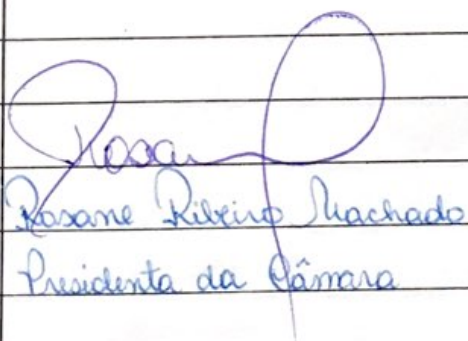 Rosan
Rosane Ribeiro Machado
Presidenta da Câmara